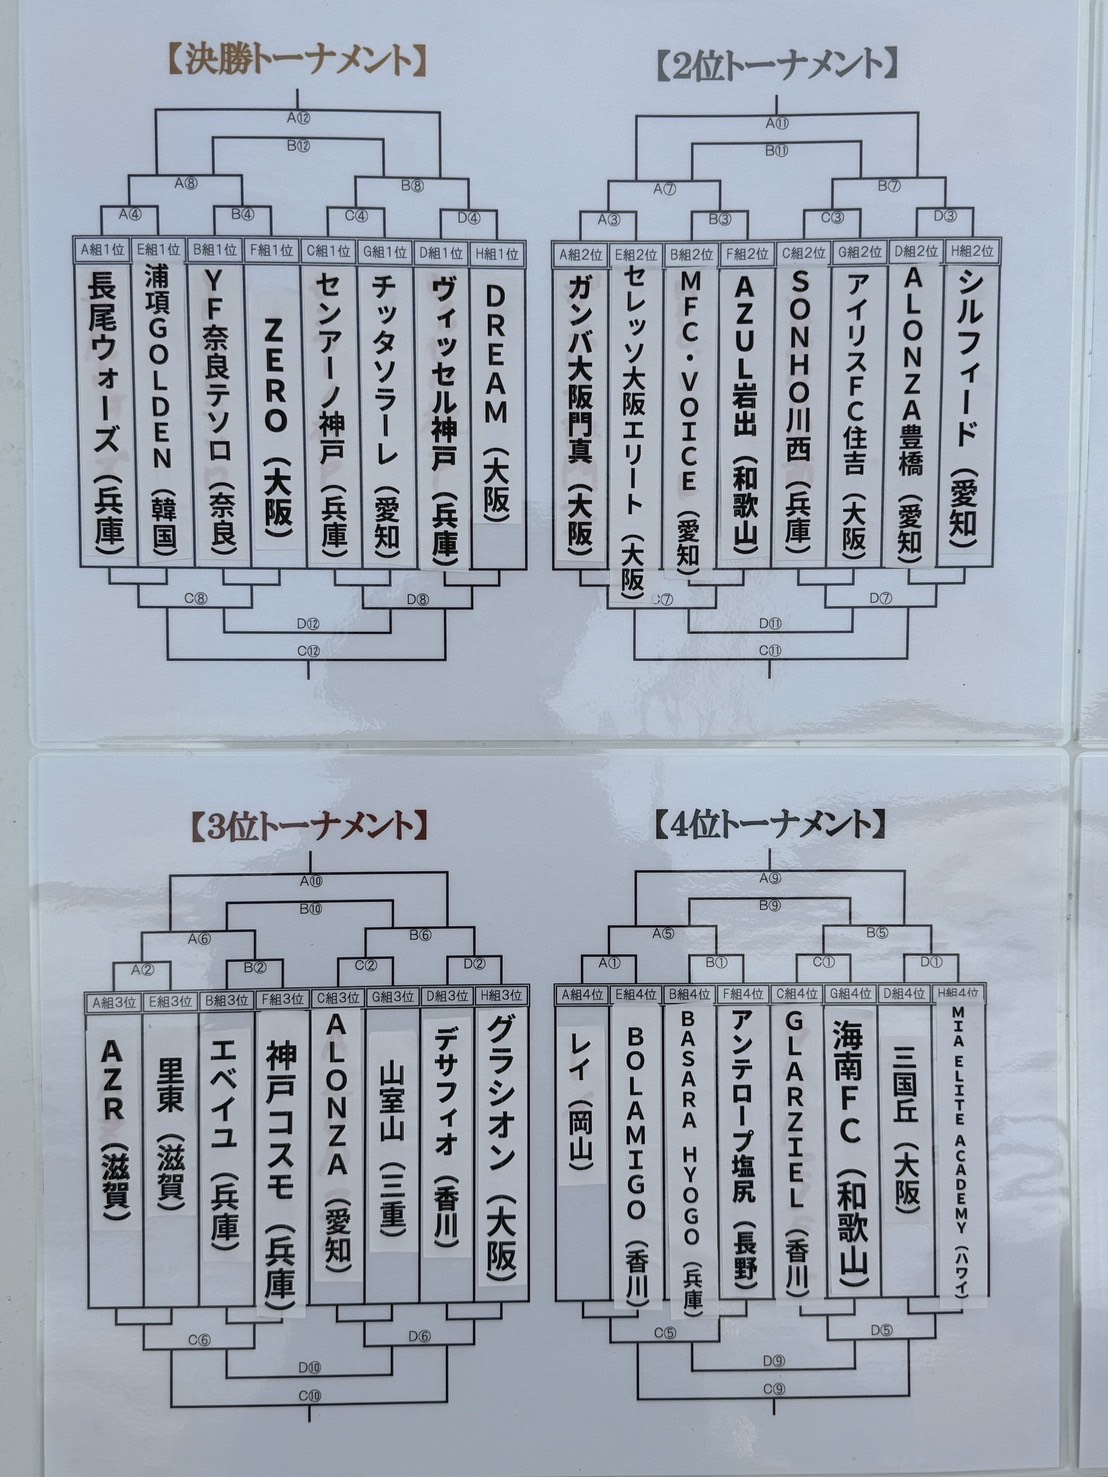 【決勝トーナメント】
A⑫
B⑫
A⑧
B⑧
A④
B④
C④
D④
A組1位
E組1位
B組1位
F組1位
C組1位
G組1位
D組1位
H組1位
長尾ウォーズ（兵庫）
浦項GOLDEN（韓国）
YF奈良テソロ（奈良）
ZERO（大阪）
センアーノ神戸（兵庫）
チッタソラーレ（愛知）
ヴィッセル神戸（兵庫）
DREAM（大阪）
C⑧
D⑧
D⑫
C⑫
【2位トーナメント】
A⑪
B⑪
A⑦
B⑦
A③
B③
C③
D③
A組2位
E組2位
B組2位
F組2位
C組2位
G組2位
D組2位
H組2位
ガンバ大阪門真（大阪）
セレッソ大阪エリート（大阪）
MFC・VOICE（愛知）
AZUL岩出（和歌山）
SONHO川西（兵庫）
アイリスFC住吉（大阪）
ALONZA豊橋（愛知）
シルフィード（愛知）
C⑦
D⑦
D⑪
C⑪
【3位トーナメント】
A⑩
B⑩
A⑥
B⑥
A②
B②
C②
D②
A組3位
E組3位
B組3位
F組3位
C組3位
G組3位
D組3位
H組3位
AZR（滋賀）
里東（滋賀）
エベイユ（兵庫）
神戸コスモ（兵庫）
ALONZA（愛知）
山室山（三重）
デサフィオ（香川）
グラシオン（大阪）
C⑥
D⑥
D⑩
C⑩
【4位トーナメント】
A⑨
B⑨
A⑤
B⑤
A①
B①
C①
D①
A組4位
E組4位
B組4位
F組4位
C組4位
G組4位
D組4位
H組4位
レイ（岡山）
BOLAMIGO（香川）
BASARA HYOGO（兵庫）
アンテロープ塩尻（長野）
GLARZIEL（香川）
海南FC（和歌山）
三国丘（大阪）
MIA ELITE ACADEMY（ハワイ）
C⑤
D⑤
D⑨
C⑨